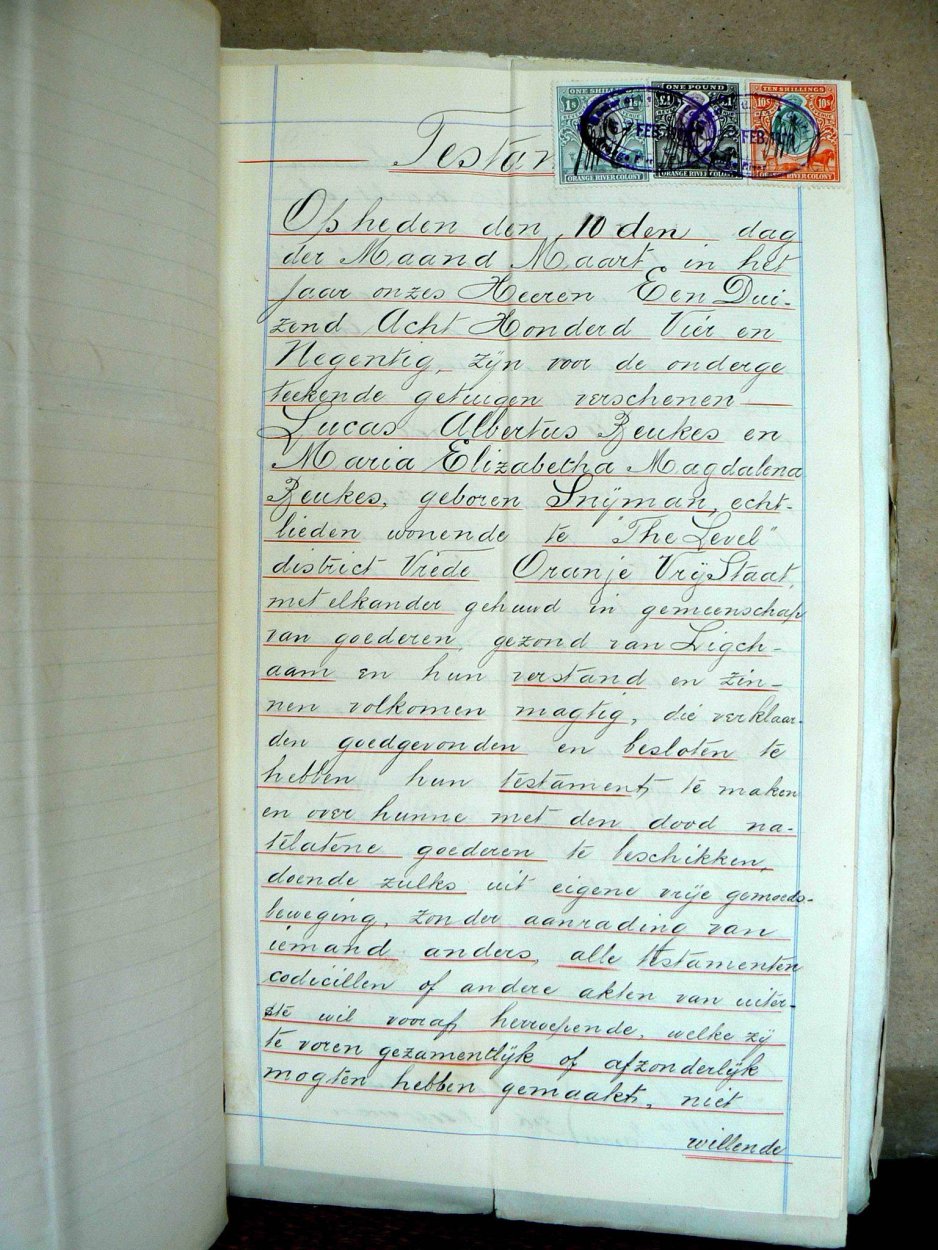 ONE SHILLING ONE POUND TEN SHILLINGS
1s 1s £1 £1 10s 10s
FEB FEB
ORANGE RIVER COLONY ORANGE RIVER COLONY ORANGE RIVER COLONY
Testam
Op heden den 10 den dag
der Maand Maart in het
Jaar onzes Heeren Een Dui-
zend Acht Honderd Vier en
Negentig, zijn voor de onderge
teekende getuigen verschenen —
Lucas Albertus Beukes en
Maria Elizabetha Magdalena
Beukes, geboren Snijman, echt-
lieden wonende te "The Level"
district Vrede Oranje VrijStaat,
met elkander gehuwd in gemeenschap
van goederen, gezond van Ligch-
aam en hun verstand en zin-
nen volkomen magtig, die verklaar-
den goedgevonden en besloten te
hebben hun testament te maken
en over hunne met den dood na-
telatene goederen te beschikken,
doende zulks uit eigene vrije gemoeds-
beweging, zonder aanrading van
iemand anders, alle testamenten
codicillen of andere akten van uiter-
ste wil vooraf herroepende, welke zij
te voren gezamentlijk of afzonderlijk
mogten hebben gemaakt, niet
willende